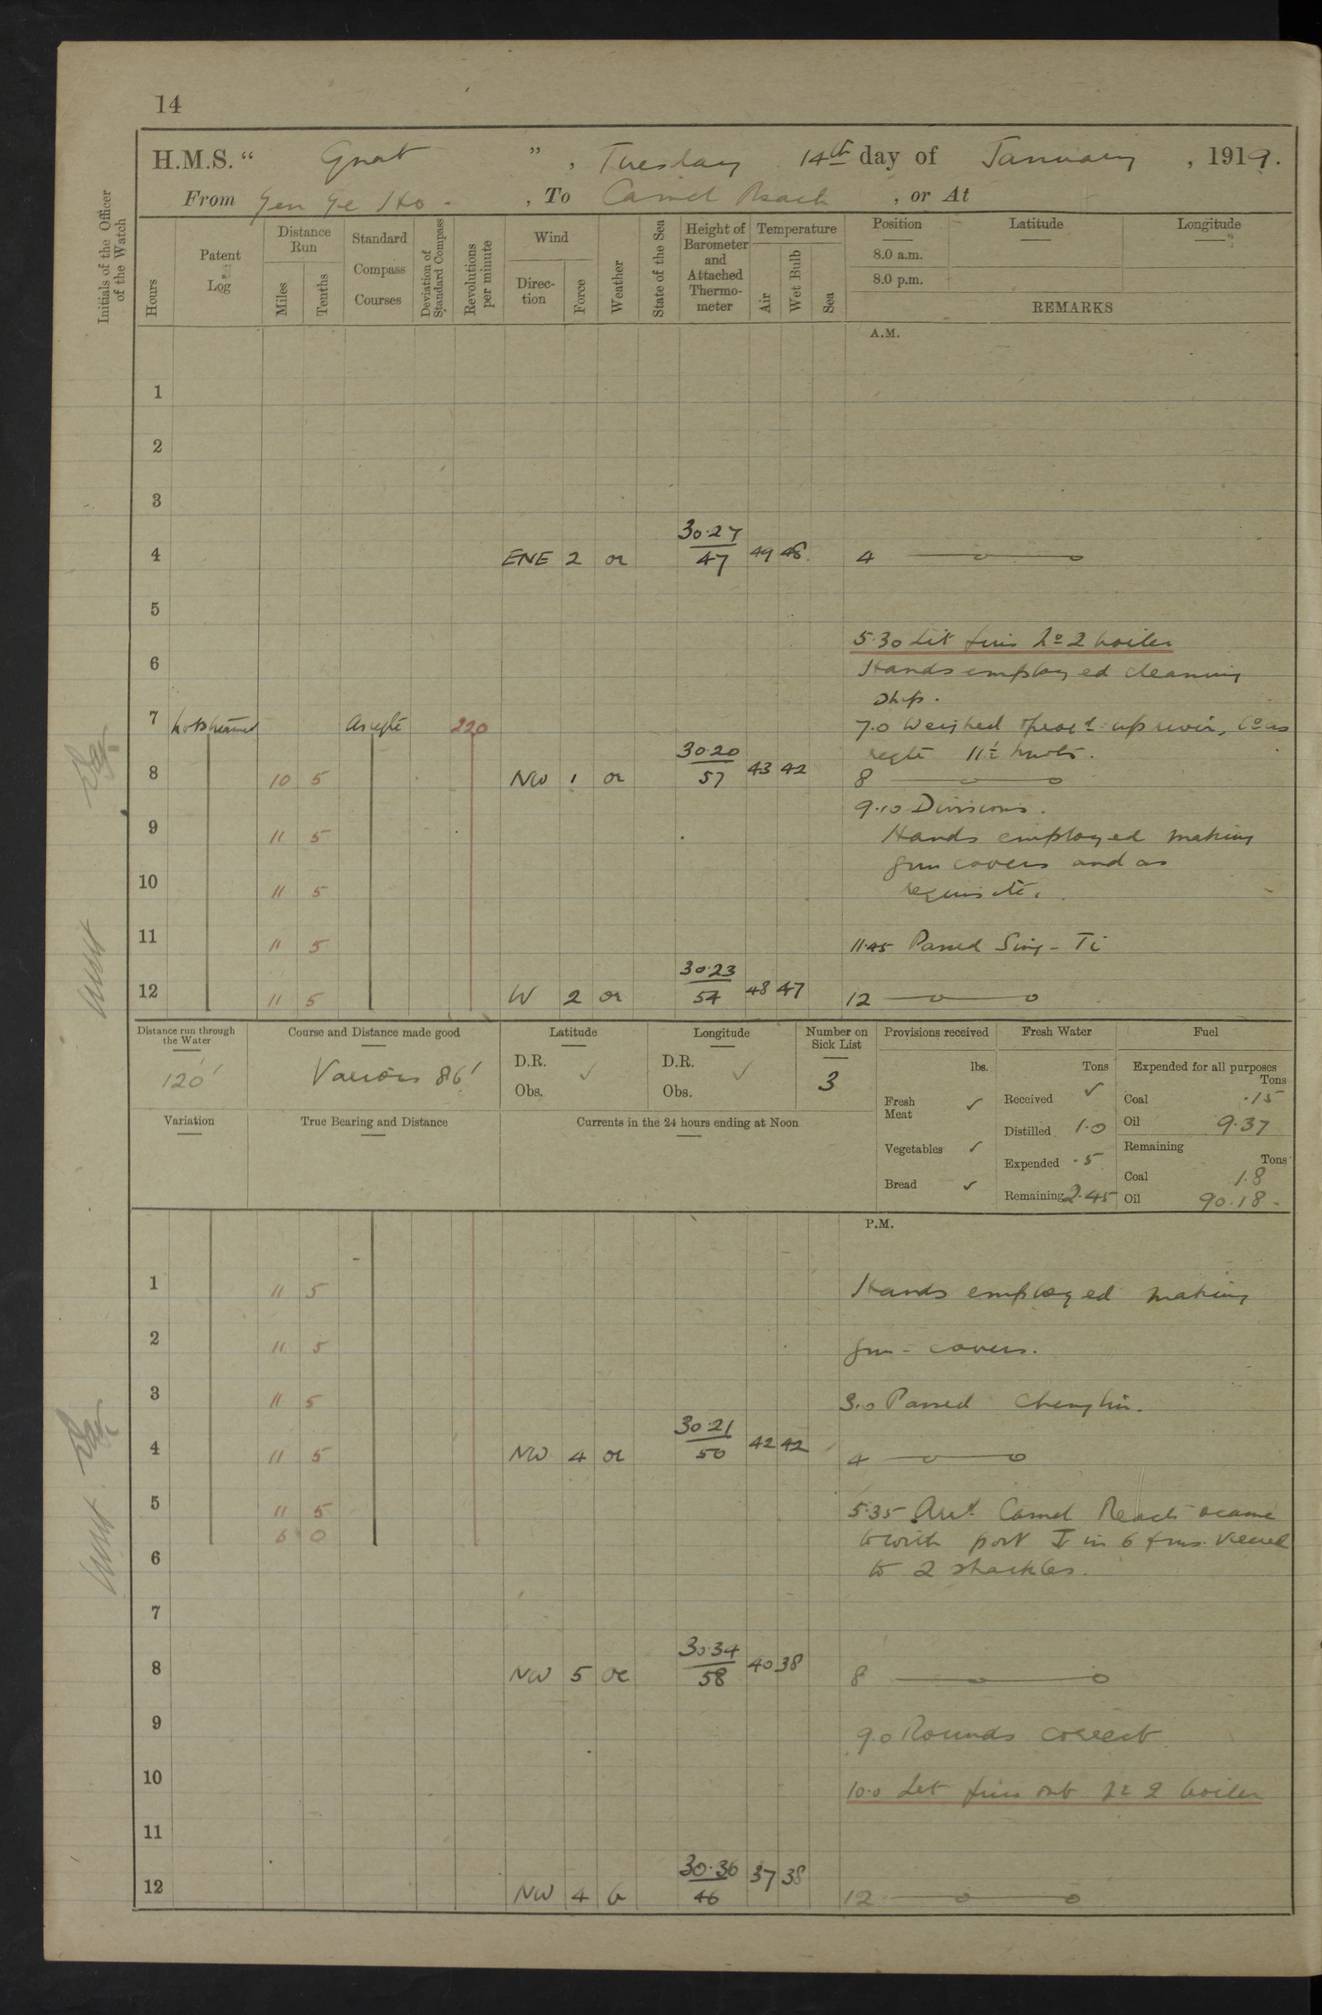 14
H.M.S. " Gnat " , Tuesday 14th day of January , 1919.
From Yen Ye Ho - , To Camel Reach , or At
Initials of the Officer of the Watch
Hours
Patent Log
Distance Run
Miles
Tenths
Standard Compass Courses
Deviation of Standard Compass
Revolutions per minute
Wind
Direction
Force
Weather
State of the Sea
Height of Barometer and Attached Thermometer
Temperature
Air
Wet Bulb
Sea
Position
Latitude
Longitude
8.0 a.m.
8.0 p.m.
REMARKS
A.M.
1
2
3
4 ENE 2 or 30.27 47 49 48 4
5
5.30 Lit fires No 2 boiler
6 Hands employed cleaning
ship.
7 not streamed As reqte 220 7.0 Weighed & up river, Co as
reqte 11½ knots.
8 10 5 NW 1 or 30.20 57 43 42 8
9.10 Divisions.
9 11 5 Hands employed making
gun covers and as
10 11 5 requisite.
11 11 5 11.45 Passed Sing-Ti
12 11 5 W 2 or 30.23 54 48 47 12
Distance run through the Water
120'
Course and Distance made good
Various 86'
Latitude
D.R. ✓
Obs.
Longitude
D.R. ✓
Obs.
Number on Sick List
3
Provisions received
lbs.
Fresh Meat ✓
Vegetables ✓
Bread ✓
Fresh Water
Tons
Received ✓
Distilled 1.0
Expended .5
Remaining 2.45
Fuel
Expended for all purposes
Tons
Coal .15
Oil 9.37
Remaining
Tons
Coal 1.8
Oil 90.18 -
Variation
True Bearing and Distance
Currents in the 24 hours ending at Noon
P.M.
1 11 5 Hands employed making
2 11 5 gun-covers.
3 11 5 3.0 Passed Chenglin.
4 11 5 NW 4 or 30.21 50 42 42 4
5 11 5 5.35 Arrd Camel Reach & came
6 0 to with port in 6 fms. Veered
6 to 2 shackles.
7
8 NW 5 oc 30.34 58 40 38 8
9 9.0 Rounds correct
10 10.0 Let fires out No 2 boiler
11
12 NW 4 b 30.36 46 37 38 12